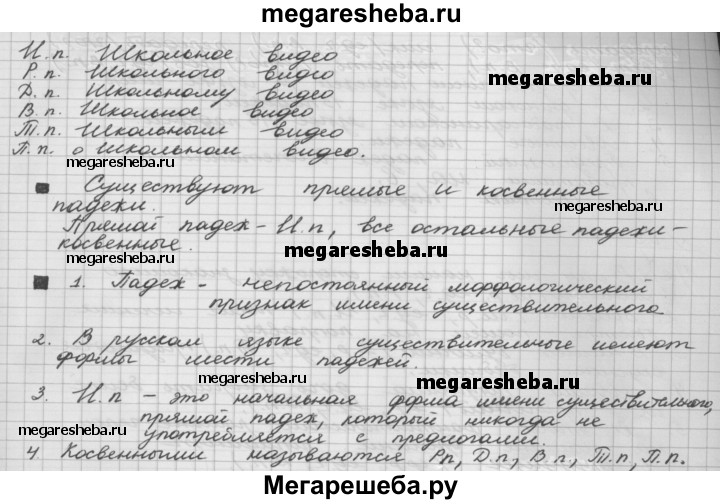 megaresheba.ru
И.п. Школьное видео
Р.п. Школьного видео
Д.п. Школьному видео
megaresheba.ru
В.п. Школьное видео
Т.п. Школьным видео
П.п. о Школьном видео.
megaresheba.ru
Существуют прямые и косвенные
падежи.
megaresheba.ru
Прямой падеж - И.п, все остальные падежи-
косвенные.
megaresheba.ru
1. Падеж - непостоянный морфологический
признак имени существительного
2. В русском языке существительные имеют
формы шести падежей.
megaresheba.ru
megaresheba.ru
3. И.п - это начальная форма имени существительного,
прямой падеж, который никогда не
употребляется с предлогами.
megaresheba.ru
4 Косвенными называются Рп, Д.п, В.п, Т.п, П.п.
megaresheba.ru
Мегарешеба.ру